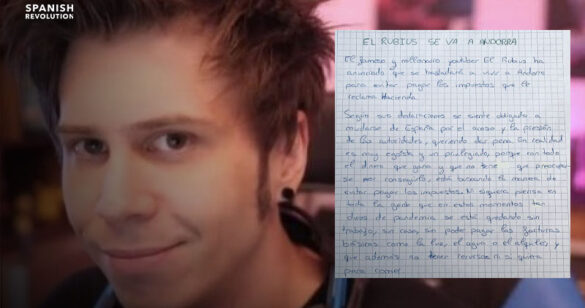 SPANISH
REVOLUTION
EL RUBIUS SE VA A ANDORRA
El famoso y millonario youtuber El Rubius ha
anunciado que se trasladará a vivir a Andorra
para evitar pagar los impuestos que le
reclama Hacienda.
Según sus declaraciones se siente obligado a
mudarse de España por el acoso y la presión
de las autoridades, queriendo dar pena. En realidad
es muy egoísta y un privilegiado, porque con todo
el dinero que gana y que no tiene que preocupar-
se por conseguirlo, está buscando la manera de
evitar pagar los impuestos. Ni siquiera piensa en
toda la gente que en estos momentos tan
duros de pandemia se está quedando sin
trabajo, sin casa, sin poder pagar las facturas
básicas como la luz, el agua o el alquiler y
que además no tener recursos ni si quiera
para comer